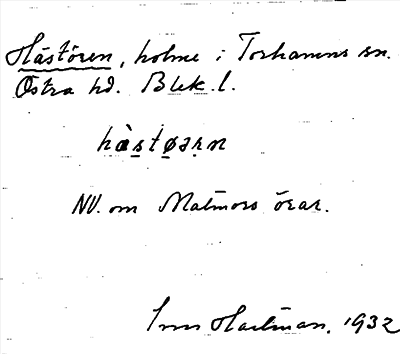 Hästören, holme i Torhamns sn.
Östra hd. Blek. l.
hàstøərn
NV. om Malmörs örar.
Hartman. 1932